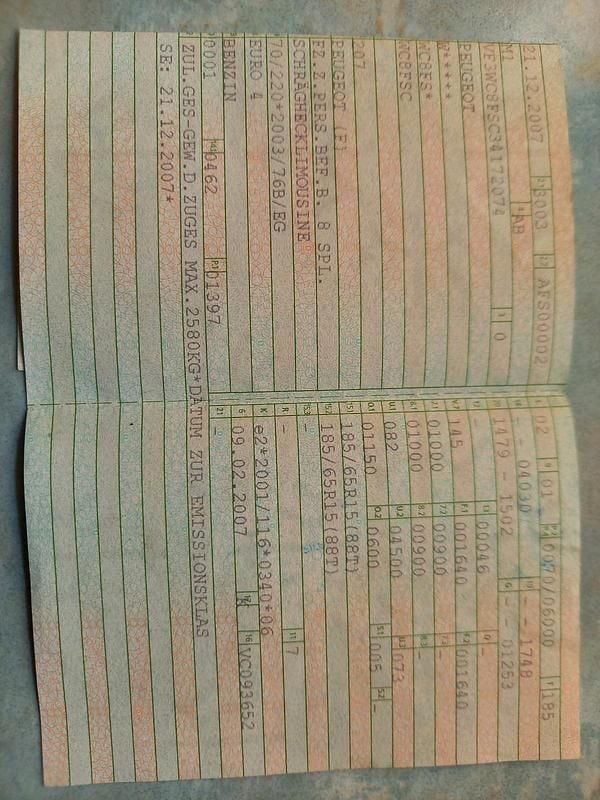 21.12.2007 2.1 3003 2.2 AFS00002
M1 4 AB
VF3WC8FSC34172074 3 0
PEUGEOT
W*****
WC8FS*
WC8FSC
207
PEUGEOT (F)
FZ.Z.PERS.BEF.B. 8 SPL.
SCHRÄGHECKLIMOUSINE
70/220*2003/76B/EG
EURO 4
BENZIN
0001 14.1 0462 P.1 01397
ZUL.GES-GEW.D.ZUGES MAX.2580KG*DATUM ZUR EMISSIONSKLAS
SE: 21.12.2007*
L 02 9 01 /06000 T 185
18 - - 04030 19 - - 1748
20 1479 - 1502 G - - 01253
12 - 13 00046 Q -
V.7 145 F.1 001640 F.2 001640
7.1 01000 7.2 00900 7.3 -
8.1 01000 8.2 00900 8.3 -
U.1 082 U.2 04500 U.3 073
O.1 01150 O.2 0600 S.1 005 S.2 -
15.1 185/65R15(88T)
15.2 185/65R15(88T)
15.3 -
R - 11 7
K e2*2001/116*0340*06
6 09.02.2007 17 K 16 VC093652
21 -